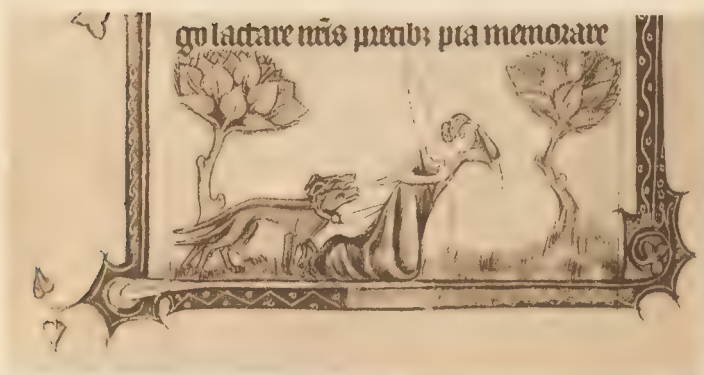 go lactare nr̄is precibꝫ pia memorare